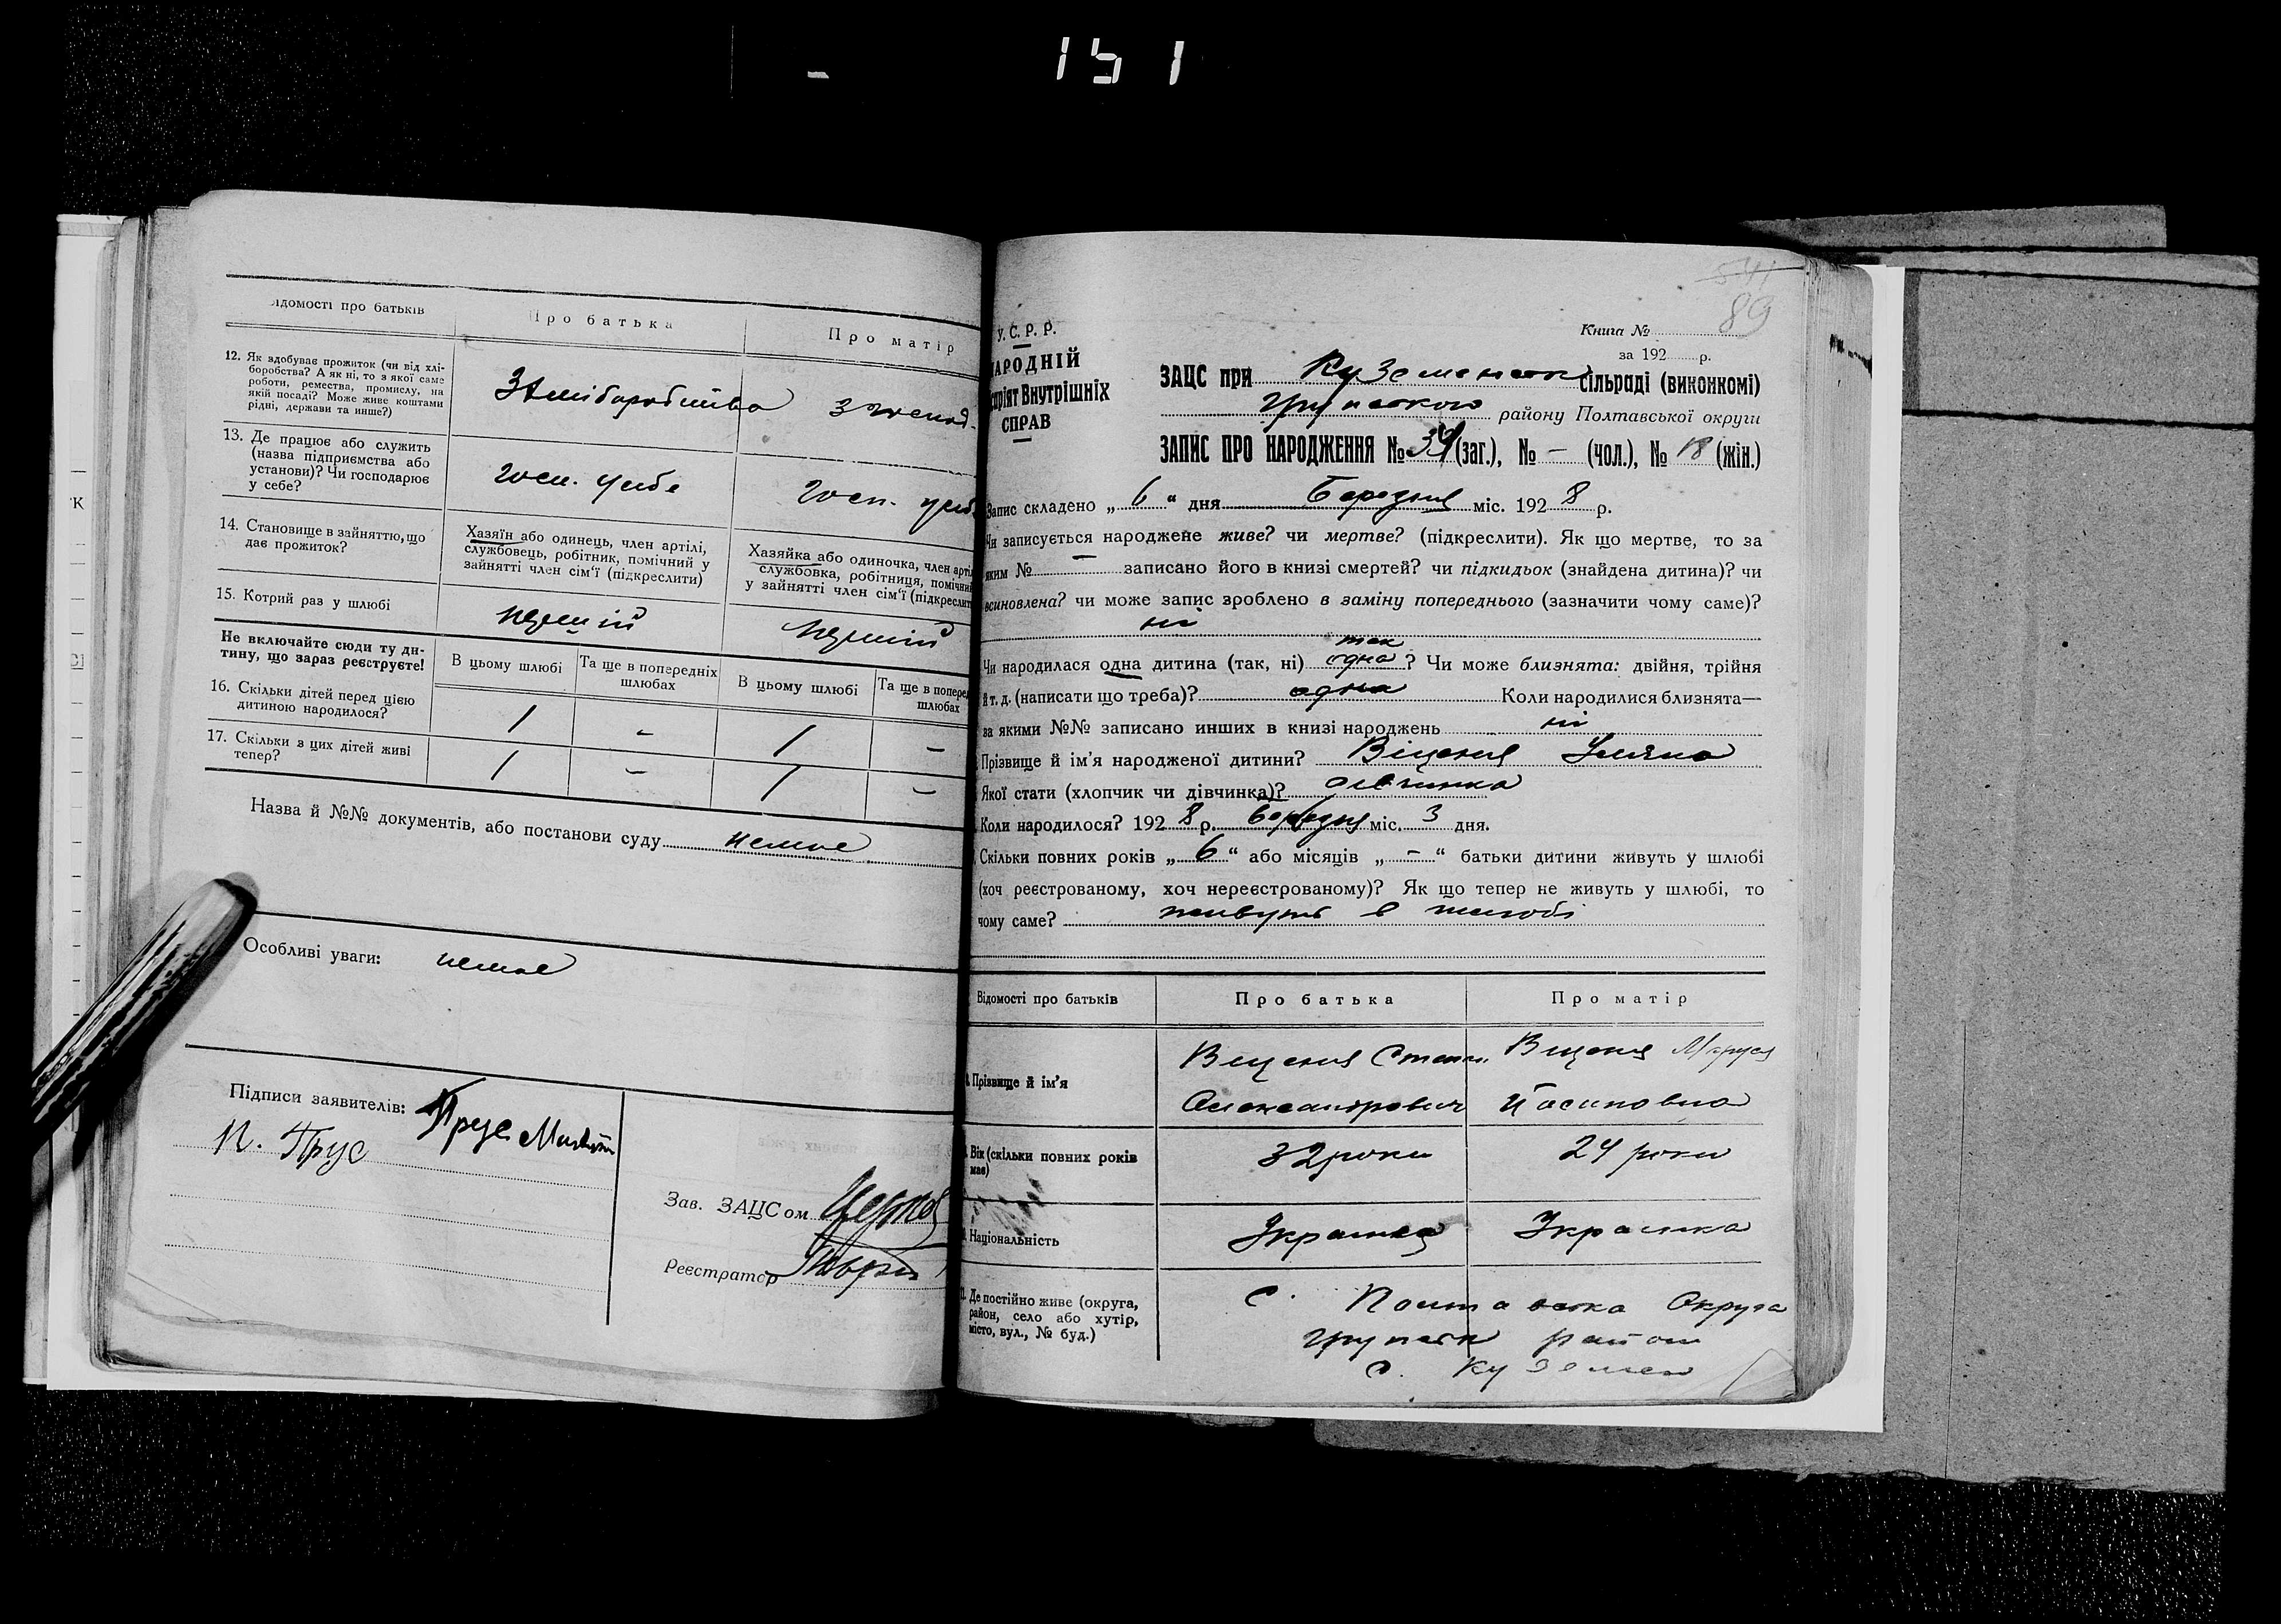 151
ідомості про батьків
Про батька
Про матір
12. Як здобуває прожиток (чи від хлі-
боробства? А як ні, то з якої саме
роботи, ремества, промислу, на
якій посаді? Може живе коштами
рідні, держави та инше?)
З хліборобства
13. Де працює або служить
(назва підприємства або
установи)? Чи господарює
у себе?
госп. у себе
госп. у себе
14. Становище в зайняттю, що
дає прожиток?
Хазяїн або одинець, член артілі,
службовець, робітник, помічний у
зайнятті член сім'ї (підкреслити)
Хазяйка або одиночка, член арті
службовка, робітниця, помічни
у зайнятті член сім'ї (підкресли
15. Котрий раз у шлюбі
перший
перший
Не включайте сюди ту ди-
тину, що зараз реєструєте!
В цьому шлюбі
Та ще в попередніх
шлюбах
В цьому шлюбі
Та ще в попере
шлюбах
16. Скільки дітей перед цією
дитиною народилося?
1 - 1 -
17. Скільки з цих дітей живі
тепер?
1 - 1 -
Назва й №№ документів, або постанови суду немає
Особливі уваги: немає
Підписи заявителів: Прус
П. Прус
Зав. ЗАЦСом
Реєстратор
541
89
У. С. Р. Р.
АРОДНІЙ
Внутрішніх
СПРАВ
Книга №
за 192 р.
ЗАЦС при Куземенськ сільраді (виконкомі)
Грунського району Полтавської округи
ЗАПИС ПРО НАРОДЖЕННЯ № 34 (заг.), № – (чол.), № 18 (жін.)
Запис складено „ 6 “ дня Березня міс. 192 8 р.
Чи записується народжене живе? чи мертве? (підкреслити). Як що мертве, то за
яким № – записано його в книзі смертей? чи підкидьок (знайдена дитина)? чи
всиновлена? чи може запис зроблено в заміну попереднього (зазначити чому саме)?
ні
так
Чи народилася одна дитина (так, ні) одна ? Чи може близнята: двійня, трійня
й т. д. (написати що треба)? одна Коли народилися близнята—
за якими №№ записано инших в книзі народжень ні
Прізвище й ім'я народженої дитини? Віценя Уляна
Якої стати (хлопчик чи дівчинка)? дівчинка
Коли народилося? 192 8 р. березня міс. 3 дня.
Скільки повних років „ 6 “ або місяців „ – “ батьки дитини живуть у шлюбі
(хоч реєстрованому, хоч нереєстрованому)? Як що тепер не живуть у шлюбі, то
чому саме? живуть в шлюбі
Відомості про батьків
Про батька
Про матір
Прізвище й ім'я
Віценя Степан
Олександрович
Віценя Маруся
Йосиповна
Вік (скільки повних років
має)
32 роки
24 роки
Національність
Українец
Українка
Де постійно живе (округа,
район, село або хутір,
місто, вул., № буд.)
с. Полтавська Округа
Грунськ район
с. Куземен